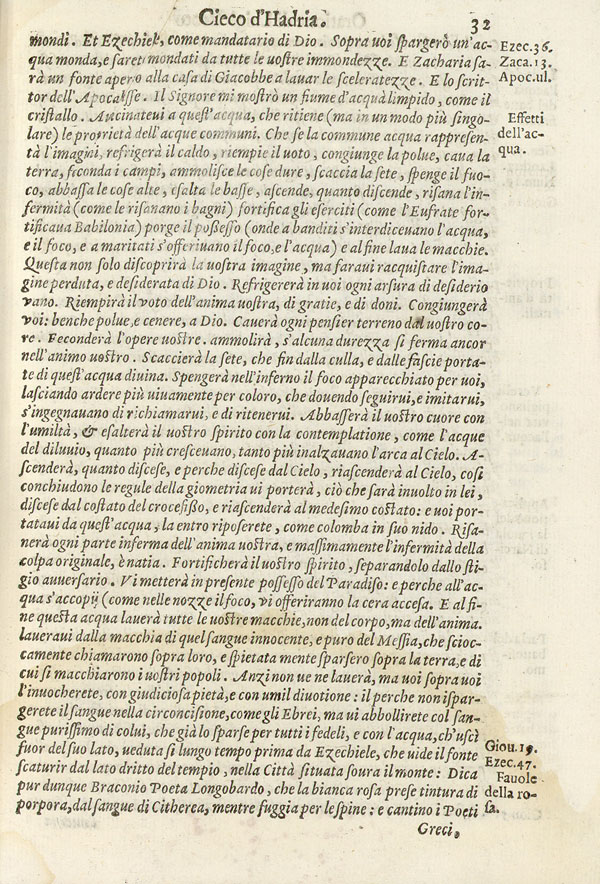 Cieco d'Hadria. 32
mondi. Et Ezechiel, come mandatario di Dio. Sopra uoi spargerò un'ac-
qua monda, e sarete mondati da tutte le uostre immondezze. E Zacharia sa-
rà un fonte aperto alla casa di Giacobbe a lauar le sceleratezze. E lo scrit-
tor dell'Apocalisse. Il Signore mi mostrò un fiume d'acqua limpido, come il
cristallo. Auicinateui a quest'acqua, che ritiene (ma in un modo più singo-
lare) le proprietà dell'acque communi. Che se la commune acqua rappresen-
ta l'imagini, refrigerà il caldo, riempie il uoto, congiunge la polue, caua la
terra, feconda i campi, ammolisce le cose dure, scaccia la sete, spenge il fuo-
co, abbassa le cose alte, esalta le basse, ascende, quanto discende, risana l'in-
fermità (come le risanano i bagni) fortifica gli eserciti (come l'Eufrate for-
tificaua Babilonia) porge il possesso (onde a banditi s'interdiceuano l'acqua,
e il foco, e a maritati s'offeriuano il foco, e l'acqua) e al fine laua le macchie.
Questa non solo discoprirà la uostra imagine, ma faraui racquistare l'ima-
gine perduta, e desiderata di Dio. Refrigererà in uoi ogni arsura di desiderio
vano. Riempirà il voto dell'anima uostra, di gratie, e di doni. Congiungerà
voi: benche polue, e cenere, a Dio. Cauerà ogni pensier terreno dal uostro co-
re. Feconderà l'opere uostre. ammolirà, s'alcuna durezza si ferma ancor
nell'animo uostro. Scaccierà la sete, che fin dalla culla, e dalle fascie porta-
te di quest'acqua diuina. Spengerà nell'inferno il foco apparecchiato per uoi,
lasciando ardere più uiuamente per coloro, che douendo seguirui, e imitarui,
s'ingegnauano di richiamarui, e di ritenerui. Abbasserà il uostro cuore con
l'umiltà, & esalterà il uostro spirito con la contemplatione, come l'acque
del diluuio, quanto più cresceuano, tanto più inalzauano l'arca al Cielo. A-
scenderà, quanto discese, e perche discese dal Cielo, riascenderà al Cielo, così
conchiudono le regule della giometria ui porterà, ciò che sarà inuolto in lei,
discese dal costato del crocefisso, e riascenderà al medesimo costato: e uoi por-
tataui da quest'acqua, la entro riposerete, come colomba in suo nido. Risa-
nerà ogni parte inferma dell'anima uostra, e massimamente l'infermità della
colpa originale, è natia. Fortificherà il uostro spirito, separandolo dallo sti-
gio auuersario. Vi metterà in presente possesso del Paradiso: e perche all'ac-
qua s'accopij (come nelle nozze il foco, vi offeriranno la cera accesa. E al fi-
ne questa acqua lauerà tutte le uostre macchie, non del corpo, ma dell'anima.
laueraui dalla macchia di quel sangue innocente, e puro del Messia, che scioc-
camente chiamarono sopra loro, e spietata mente sparsero sopra la terra, e di
cui si macchiarono i uostri popoli. Anzi non ue ne lauerà, ma uoi sopra uoi
l'inuocherete, con giudiciosa pietà, e con umil diuotione: il perche non ispar-
gerete il sangue nella circoncisione, come gli Ebrei, ma ui abbollirete col san-
gue purissimo di colui, che già lo sparse per tutti i fedeli, e con l'acqua, ch'uscì
fuor del suo lato, ueduta si lungo tempo prima da Ezechiele, che uide il fonte
scaturir dal lato dritto del tempio, nella Città situata soura il monte: Dica
pur dunque Braconio Poeta Longobardo, che la bianca rosa prese tintura di
porpora, dal sangue di Citherea, mentre fuggia per le spine: e cantino i Poeti
Greci,
Ezec. 36.
Zaca. 13.
Apoc. ul.
Effetti
dell'ac-
qua.
Giou. 19.
Ezec. 47.
Fauole
della ro-
sa.